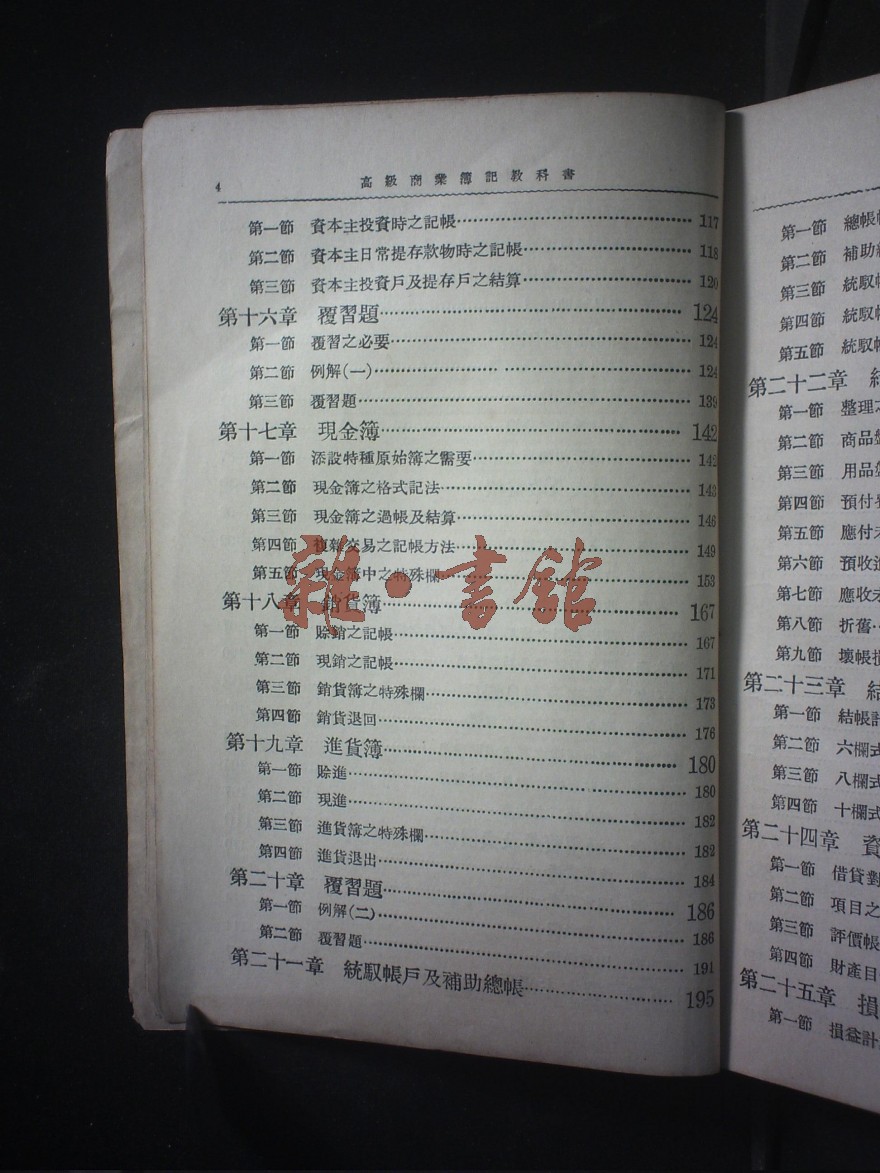 4 高級商業簿記教科書
第一節 資本主投資時之記帳 117
第二節 資本主日常提存款物時之記帳 118
第三節 資本主投資戶及提存戶之結算 120
第十六章 覆習題 124
第一節 覆習之必要 124
第二節 例解(一) 124
第三節 覆習題 139
第十七章 現金簿 142
第一節 添設特種原始簿之需要 142
第二節 現金簿之格式記法 143
第三節 現金簿之過帳及結算 146
第四節 複雜交易之記帳方法 149
第五節 現金簿中之特殊欄 153
雜·書館
第十八章 銷貨簿 167
第一節 賒銷之記帳 167
第二節 現銷之記帳 171
第三節 銷貨簿之特殊欄 173
第四節 銷貨退回 176
第十九章 進貨簿 180
第一節 賒進 180
第二節 現進 182
第三節 進貨簿之特殊欄 182
第四節 進貨退出 184
第二十章 覆習題 186
第一節 例解(二) 186
第二節 覆習題 191
第二十一章 統馭帳戶及補助總帳 195
第一節 總帳
第二節 補助
第三節 統馭
第四節 統馭
第五節 統馭
第二十二章 結
第一節 整理
第二節 商品
第三節 用品
第四節 預付
第五節 應付
第六節 預收
第七節 應收
第八節 折舊
第九節 壞帳
第二十三章
第一節 結帳
第二節 六欄式
第三節 八欄式
第四節 十欄式
第二十四章 資
第一節 借貸
第二節 項目之
第三節 評價帳
第四節 財產目
第二十五章 損
第一節 損益計